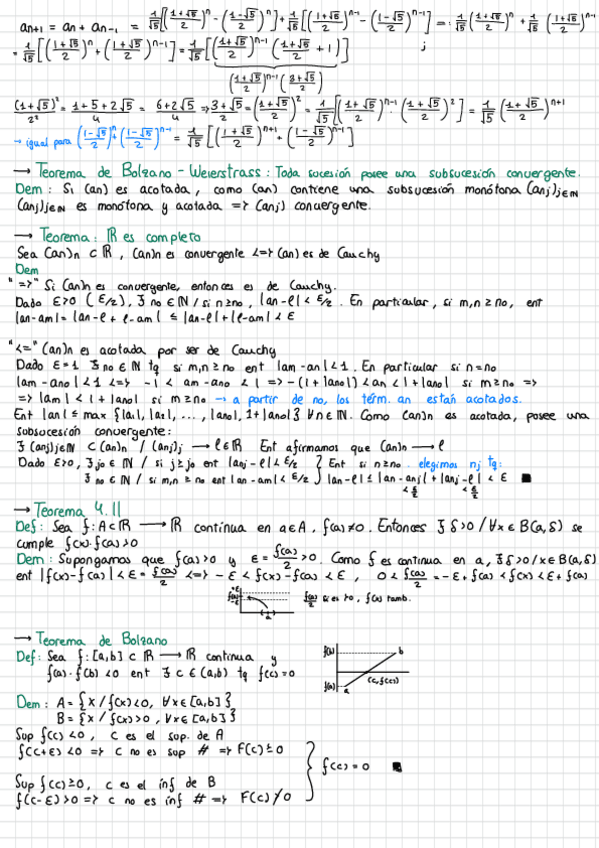 an+1 = an + an-1 = 1/√5 [((1+√5)/2)^n - ((1-√5)/2)^n] + 1/√5 [((1+√5)/2)^n-1 - ((1-√5)/2)^n-1] =: 1/√5 ((1+√5)/2)^n + 1/√5 ((1+√5)/2)^n-1
= 1/√5 [((1+√5)/2)^n + ((1+√5)/2)^n-1] = 1/√5 [((1+√5)/2)^n-1 ((1+√5)/2 + 1)] ;
((1+√5)/2)^n-1 ((3+√5)/2)
(1+√5)²/2² = (1+5+2√5)/4 = (6+2√5)/4 => (3+√5)/2 = ((1+√5)/2)² = 1/√5 [((1+√5)/2)^n-1 · ((1+√5)/2)²] = 1/√5 ((1+√5)/2)^n+1
→ igual para ((1-√5)/2)^n + ((1-√5)/2)^n-1 = 1/√5 [((1+√5)/2)^n+1 - ((1-√5)/2)^n-1]
→ Teorema de Bolzano - Weierstrass : Toda sucesión posee una subsucesión convergente.
Dem : Si (an) es acotada, como (an) contiene una subsucesión monótona (anj)j∈ℕ
(anj)j∈ℕ es monótona y acotada => (anj) convergente.
→ Teorema : ℝ es completo
Sea (an)n ⊂ ℝ, (an)n es convergente <=> (an) es de Cauchy
Dem
"=>" Si (an)n es convergente, entonces es de Cauchy.
Dado ε>0 (ε/2), ∃ no ∈ ℕ / si n≥no, |an-l| < ε/2. En particular, si m,n ≥ no, ent
|an-am| = |an-l + l-am| ≤ |an-l|+|l-am| < ε
"<=" (an)n es acotada por ser de Cauchy
Dado ε=1 ∃ no ∈ ℕ tq si m,n ≥ no ent |am-an|<1. En particular si n=no
|am-ano| < 1 <=> -1 < am-ano < 1 => -(1+|ano|) < an < 1+|ano| si m≥no =>
=> |am| < 1+|ano| si m≥no → a partir de no, los térm. an están acotados.
Ent |an| ≤ max {|a1|, |a2|, ..., |ano|, 1+|ano|} ∀n∈ℕ. Como (an)n es acotada, posee una
subsucesión convergente:
∃ (anj)j∈ℕ ⊂ (an)n / (anj)j → l∈ℝ Ent afirmamos que (an)n → l
Dado ε>0, ∃ jo ∈ ℕ / si j≥jo ent |anj-l| < ε/2 } Ent si n≥no, elegimos nj tq:
∃ no ∈ ℕ / si m,n ≥ no ent |an-am| < ε/2 } |an-l| ≤ |an-anj| + |anj-l| < ε ■
< ε/2 < ε/2
→ Teorema 4.11
Def: Sea f: A⊂ℝ → ℝ continua en a∈A, f(a)≠0. Entonces ∃ δ>0 / ∀x ∈ B(a,δ) se
cumple f(x)·f(a)>0
Dem: Supongamos que f(a)>0 y ε = f(a)/2 > 0. Como f es continua en a, ∃ δ>0 / x∈B(a,δ)
ent |f(x)-f(a)| < ε = f(a)/2 <=> -ε < f(x)-f(a) < ε, 0 < f(a)/2 = -ε+f(a) < f(x) < ε+f(a)
f(a)/2 si es >0, f(x) tamb.
a
→ Teorema de Bolzano
Def: Sea f: [a,b] ⊂ ℝ → ℝ continua y
f(a)·f(b) < 0 ent ∃ c ∈ (a,b) tq f(c)=0
f(b) b
(c,f(c))
f(a) a
Dem : A = {x / f(x)<0, ∀x∈[a,b]}
B = {x / f(x)>0, ∀x∈[a,b]}
Sup f(c)<0, c es el sup. de A
f(c+ε)<0 => c no es sup # => F(c)≥0
f(c)=0 ■
Sup f(c)≥0, c es el ínf de B
f(c-ε)>0 => c no es ínf # => F(c)≯0